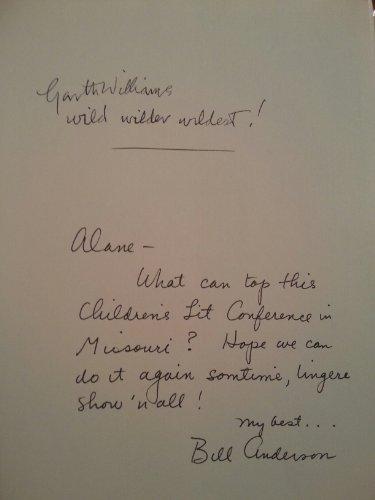 Garth Williams
wild wilder wildest!
Alane –
What can top this
Children's Lit Conference in
Missouri? Hope we can
do it again somtime, lingere
show 'n all!
my best...
Bill Anderson